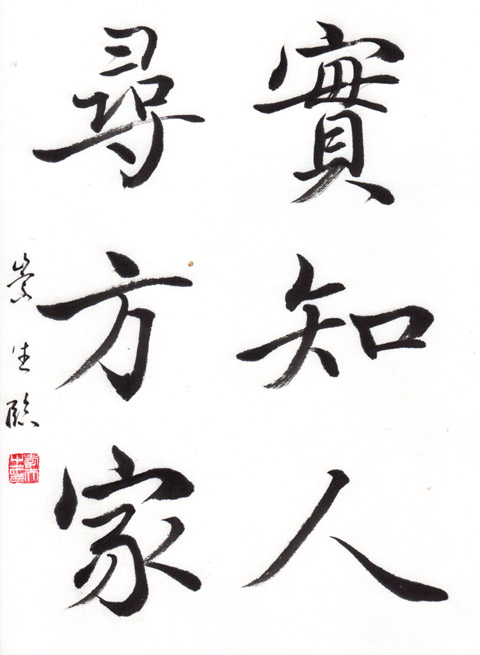 實知人
尋方家
崇生臨